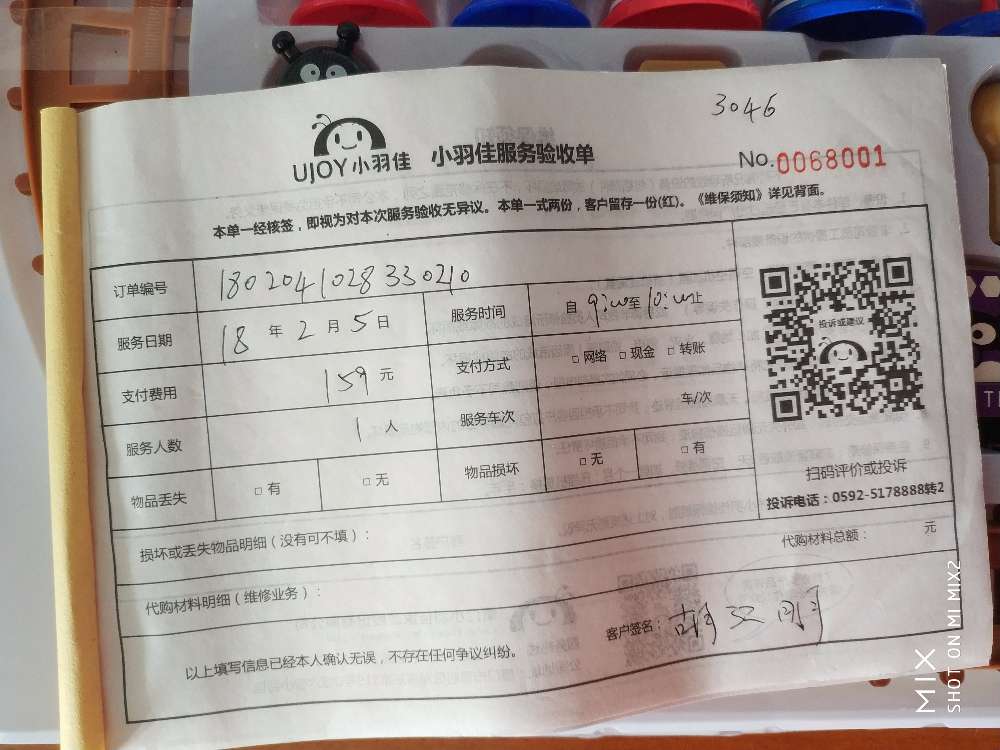 3046
UJOY小羽佳 小羽佳服务验收单 No.0068001
本单一经核签，即视为对本次服务验收无异议。本单一式两份，客户留存一份(红)。《维保须知》详见背面。
订单编号 1802041028330210
服务日期 18 年 2 月 5 日 服务时间 自 9:00 至 10:00 止
支付费用 159 元 支付方式 □ 网络 □ 现金 □ 转账
服务人数 1 人 服务车次 车/次
物品丢失 □ 有 □ 无 物品损坏 □ 无 □ 有
投诉或建议
扫码评价或投诉
投诉电话：0592-5178888转2
损坏或丢失物品明细（没有可不填）：
代购材料总额： 元
代购材料明细（维修业务）：
以上填写信息已经本人确认无误，不存在任何争议纠纷。 客户签名：
MIX
SHOT ON MI MIX2